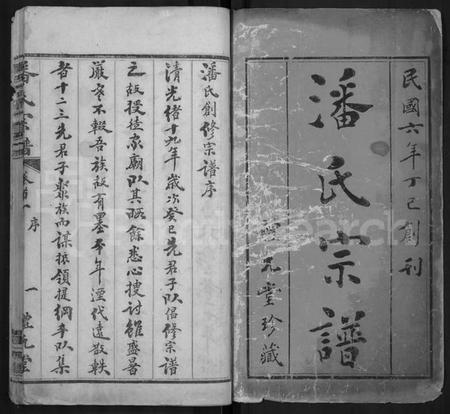 民國六年丁巳創刊
潘氏宗譜
元堂珍藏
潘氏創修宗譜序
清光緒十九年歲次癸巳先君子以倡修宗譜
之故授徒家廟以其暇餘悉心搜討雖盛暑
嚴冬不輟吾族故有墨本年湮代遠散軼
者十二三先君子聚族而謀振領提綱手以集
潘氏宗譜
卷首一
序
一
元堂